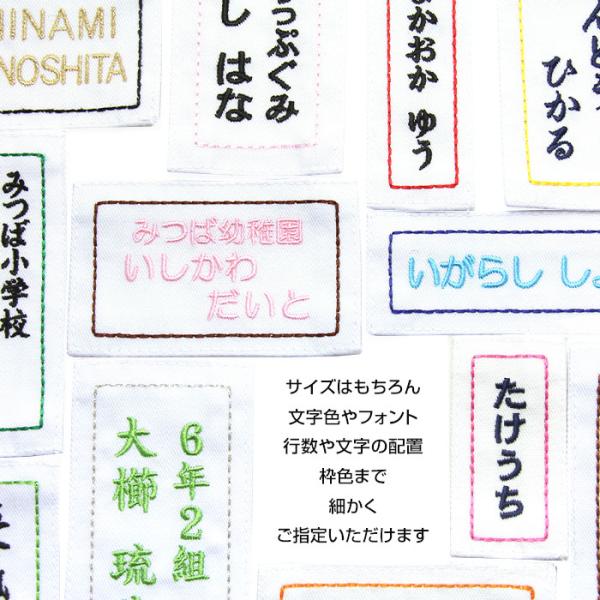 MINAMI
NOSHITA
っぷぐみ
し はな
まかおか ゆう
ひかる
みつば小学校
みつば幼稚園
いしかわ
だいと
いがらし しょ
6年2組
大櫛 琉
たけうち
サイズはもちろん
文字色やフォント
行数や文字の配置
枠色まで
細かく
ご指定いただけます